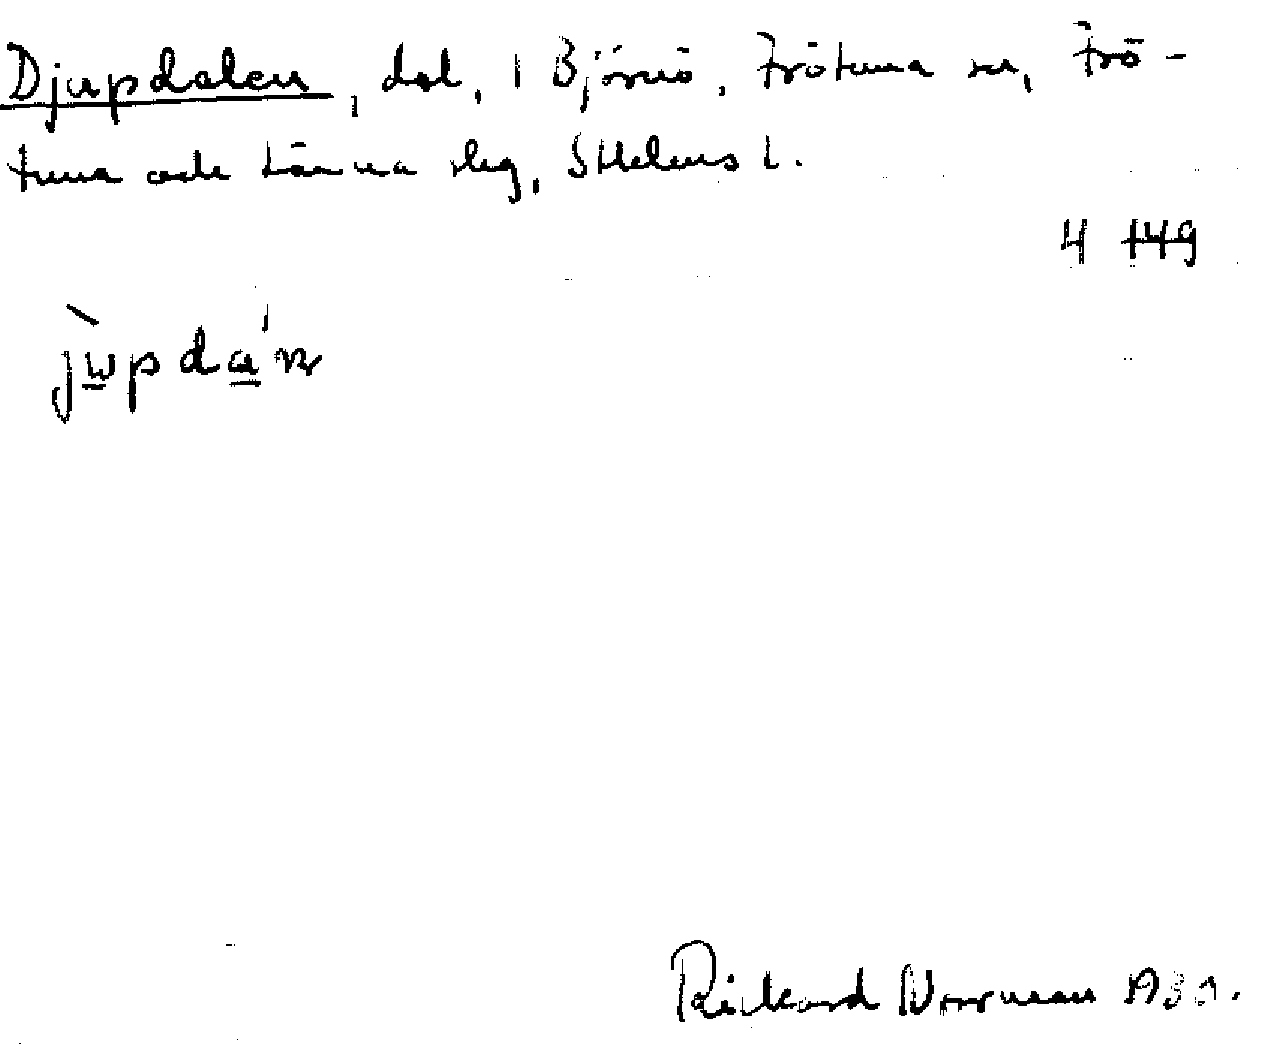 Djupdalen, dal, i Björnö, Frötuna sn, Frö-
tuna och Länna slg, Sthlms l.
4 149
jùpda'n
Rickard Norrman 1931.